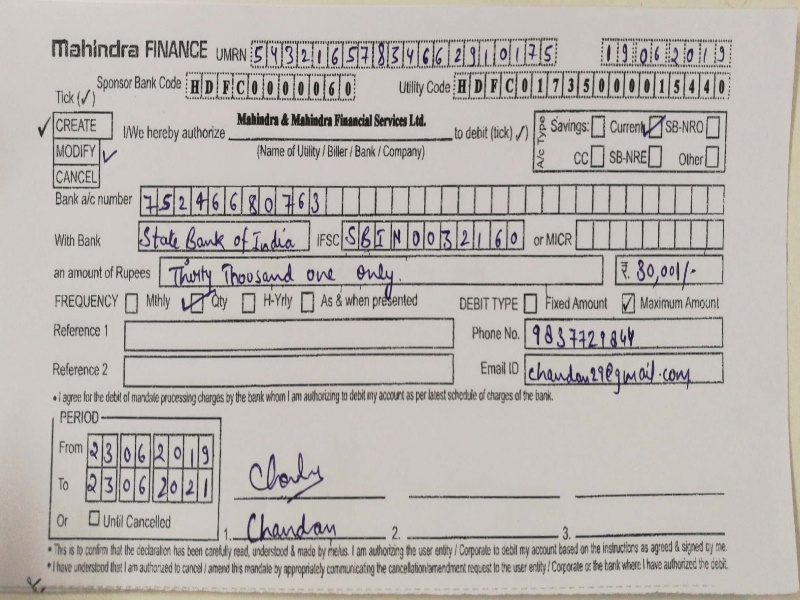 Mahindra FINANCE UMRN 54321657834662910175 19062019
Sponsor Bank Code HDFC0000060 Utility Code HDFC01735000015440
Tick (✓)
CREATE
MODIFY
CANCEL
I/We hereby authorize Mahindra & Mahindra Financial Services Ltd. to debit (tick) ✓)
(Name of Utility / Biller / Bank / Company)
A/c Type Savings: Current SB-NRO
CC SB-NRE Other
Bank a/c number 75246680763
With Bank State Bank of India IFSC SBIN0032160 or MICR
an amount of Rupees Thirty Thousand one only. ₹. 30,001/-
FREQUENCY Mthly Qty H-Yrly As & when presented DEBIT TYPE Fixed Amount Maximum Amount
Reference 1 Phone No. 9837729844
Reference 2 Email ID chandan29@gmail.com
• I agree for the debit of mandate processing charges by the bank whom I am authorizing to debit my account as per latest schedule of charges of the bank.
PERIOD
From 23062019
To 23062021
Or Until Cancelled
1. Chandan 2. 3.
• This is to confirm that the declaration has been carefully read, understood & made by me/us. I am authorizing the user entity / Corporate to debit my account based on the instructions as agreed & signed by me.
• I have understood that I am authorized to cancel / amend this mandate by appropriately communicating the cancellation/amendment request to the user entity / Corporate or the bank where I have authorized the debit.